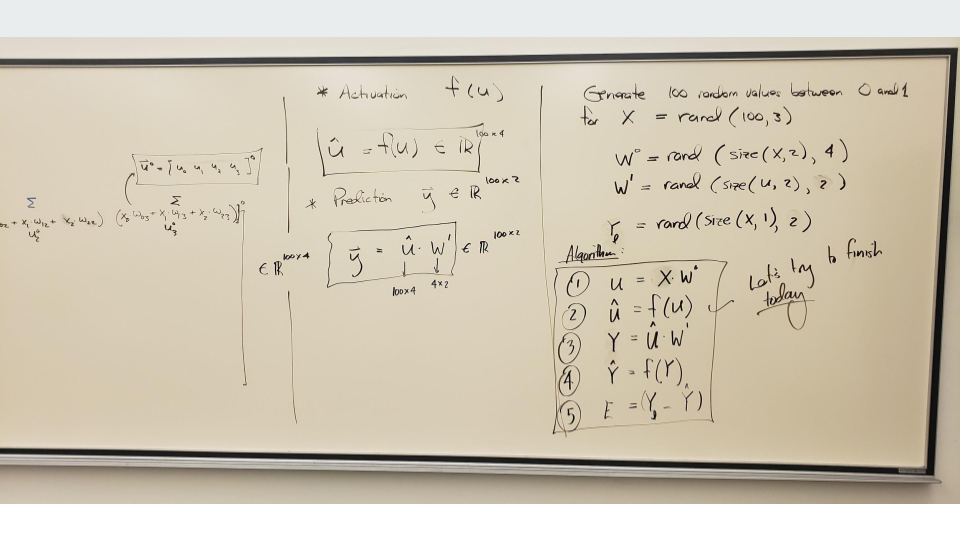 ū° = [ u₀ u₁ u₂ u₃ ]°
Σ Σ
₀₂ + x₁·ω₁₂ + x₂·ω₂₂) (x₀·ω₀₃ + x₁·ω₁₃ + x₂·ω₂₃)]°
u₂° u₃°
∈ ℝ¹⁰⁰ˣ⁴
* Activation f(u)
û = f(u) ∈ ℝ¹⁰⁰ˣ⁴
* Prediction y⃗ ∈ ℝ¹⁰⁰ˣ²
y⃗ = û · W' ∈ ℝ¹⁰⁰ˣ²
100x4 4x2
Generate 100 random values between 0 and 1
for X = rand (100,3)
W° = rand (size(X,2), 4)
W' = rand (size(u,2), 2)
Yₑ = rand (size(X,1), 2)
Algorithm:
① U = X·W°
② Û = f(U)
③ Y = Û·W'
④ Ŷ = f(Y)
⑤ E = (Yₑ - Ŷ)
Let's try to finish
today